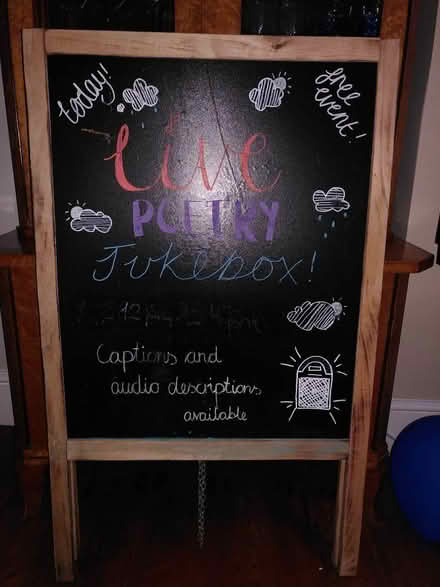 today!
free
event!
Live
POETRY
Jukebox!
Captions and
audio descriptions
available